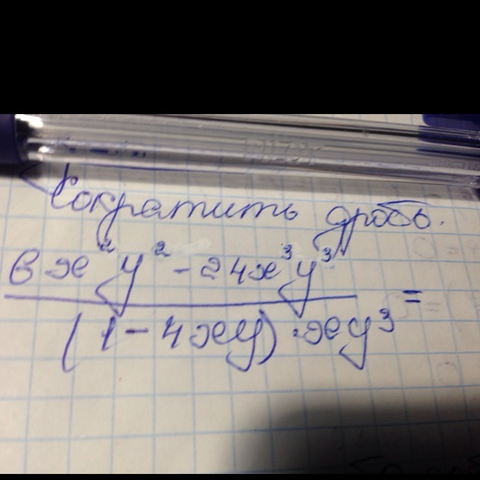 Сократить дробь.
6x²y² - 24x³y³
(1 - 4xy)·xy³ =